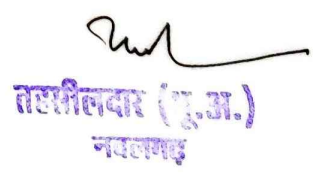 तहसीलदार (भू.अ.)
नवलगढ़